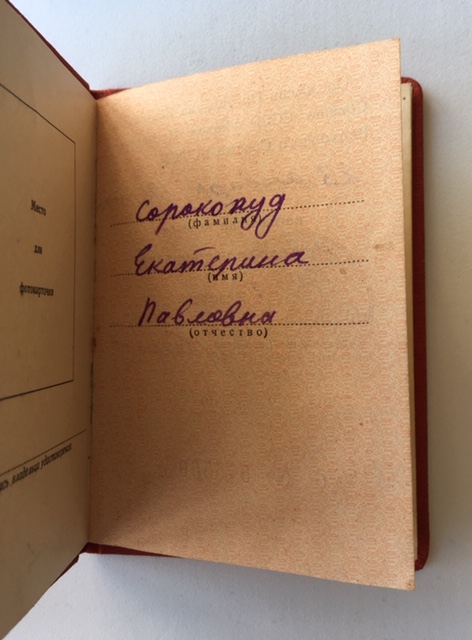 Место
для
фотокарточки
владельца удостоверения
Сорокопуд
(фамилия)
Екатерина
(имя)
Павловна
(отчество)